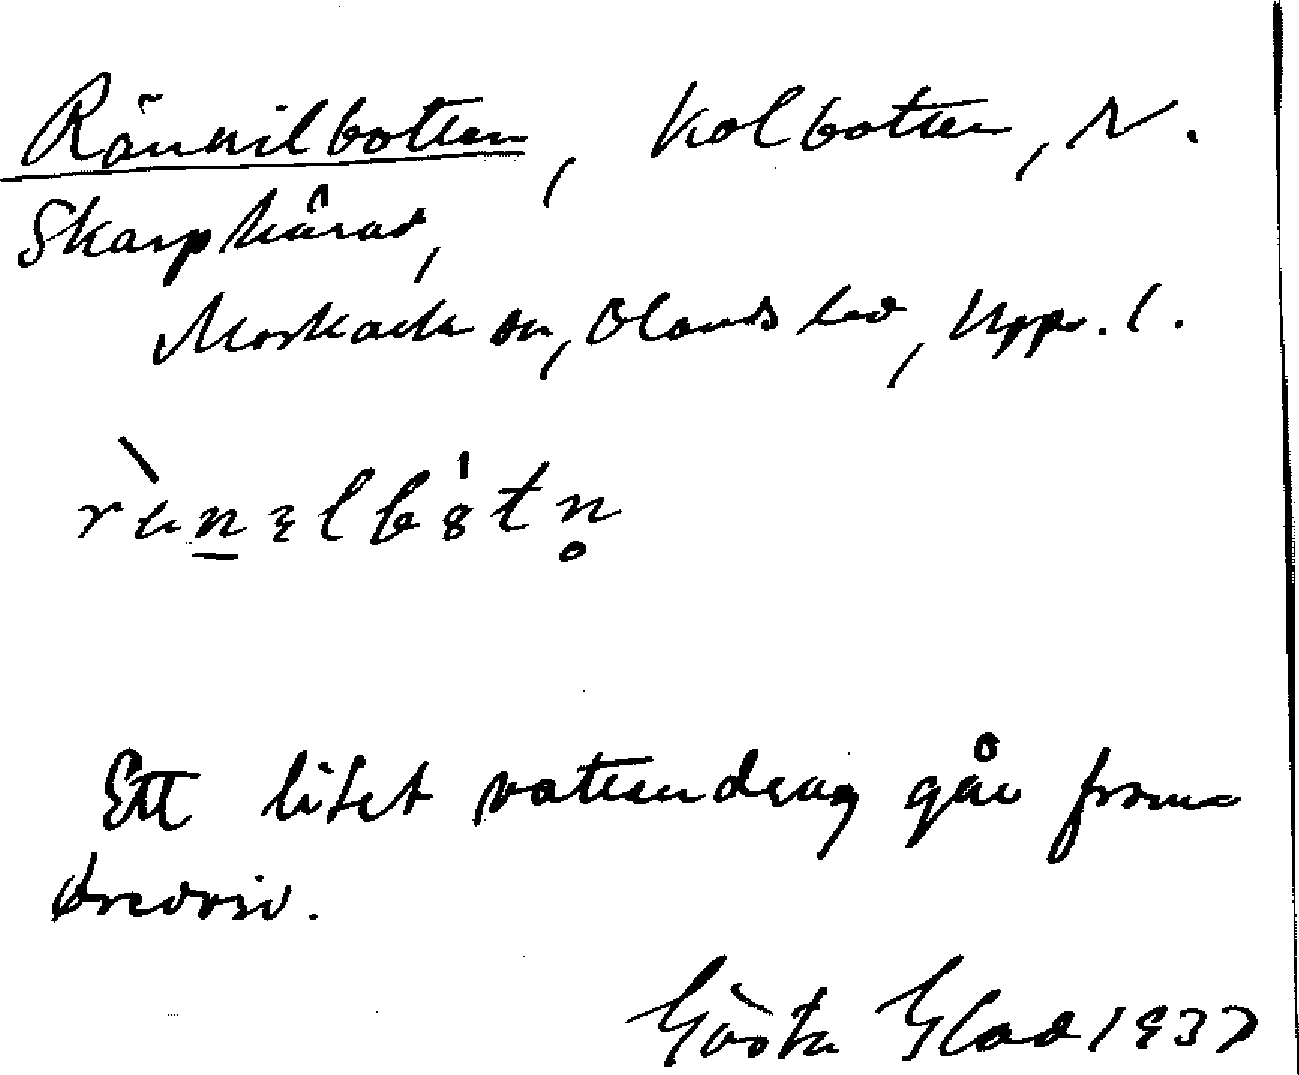 Rännilbotten, Kolbotten, N.
Skarphärad,
Morkarla sn, Olands hd, Upps. l.
Ett litet vattendrag går fram
bredvid.
Gösta Glad 1937